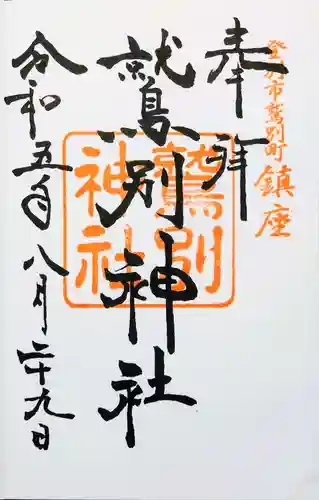 登別市鷲別町鎮座
奉拝
鷲別神社
鷲別神社
令和五年八月二十九日